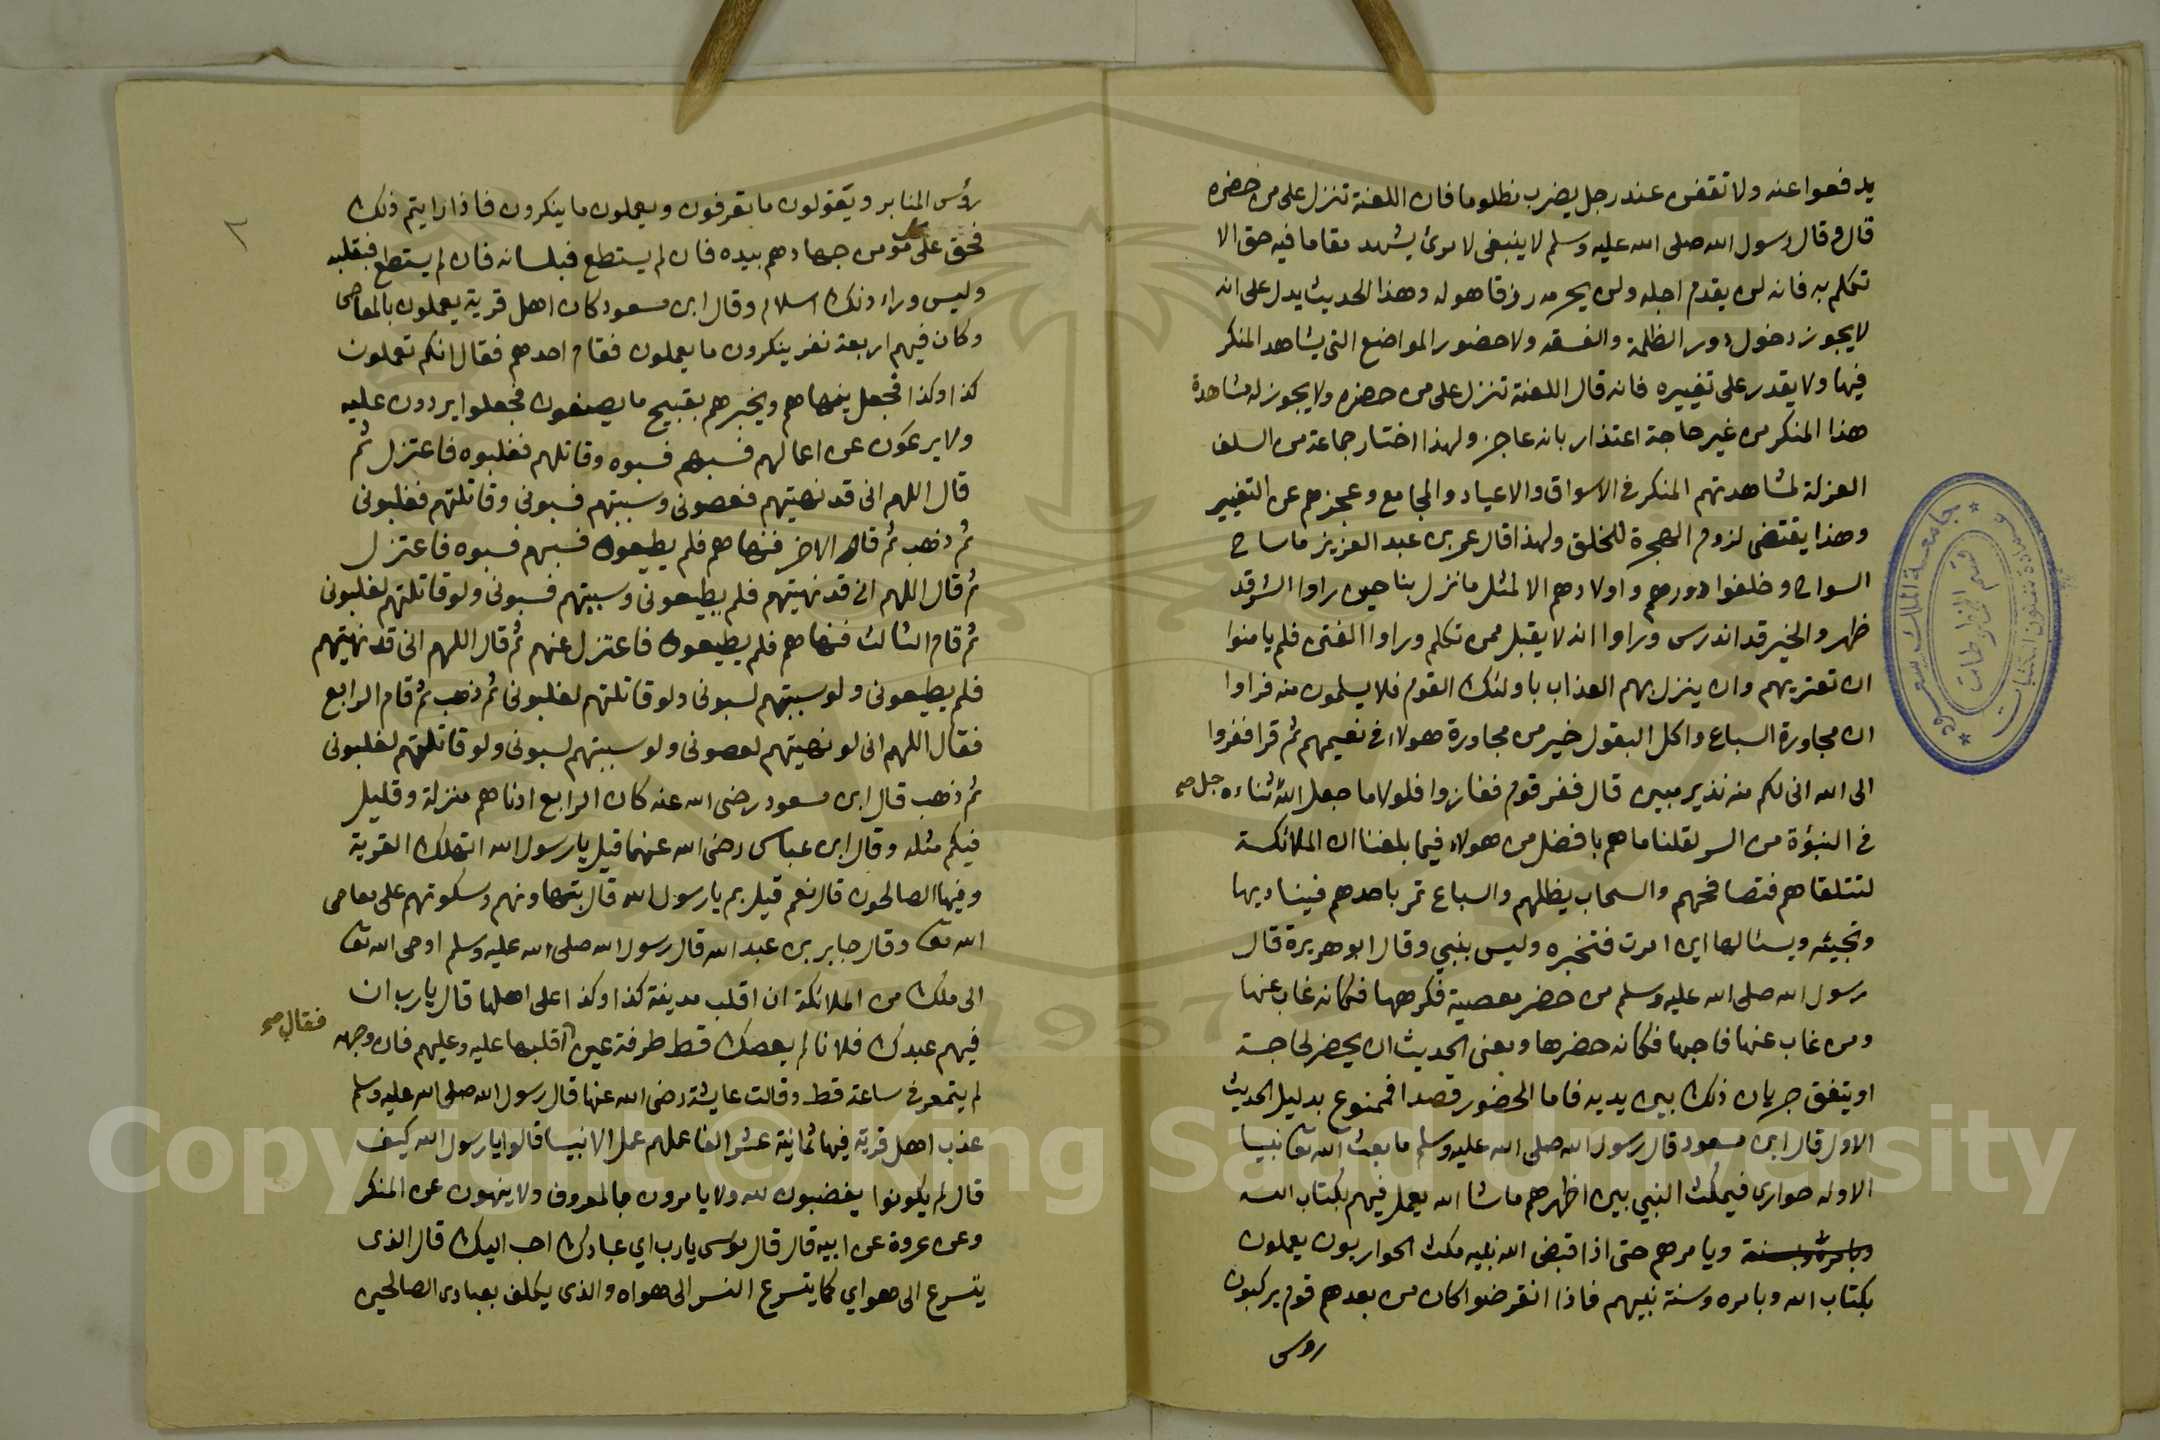 يدفعوا عنه ولا تقفن عند رجل يضرب مظلوما فان اللعنة تنزل على من حضره
قال وقال رسول الله صلى الله عليه وسلم لا ينبغى لامرئ يشهد مقاما فيه حق الا
تكلم به فانه لن يقدم اجله ولن يحرمه رزقا هو له وهذا الحديث يدل على انه
لا يجوز دخول دور الظلمة والفسقه ولا حضور المواضع التى يشاهد المنكر
فيها ولا يقدر على تغييره فانه قال اللعنة تنزل على من حضره ولا يجوز له مشاهدة
هذا المنكر من غير حاجة اعتذار بانه عاجز ولهذا اختار جماعة من السلف
العزلة لمشاهدتهم المنكر فى الاسواق والاعياد والمجامع وعجزهم عن التغيير
وهذا يقتضى لزوم الهجرة للخلق ولهذا قال عمر بن عبد العزيز ما ساح
السواح وخلفوا دورهم واولادهم الا لمثل ما نزل بنا حين راوا الشر قد
ظهر والخير قد اندرس وراوا انه لا يقبل ممن تكلم وراوا الفتن فلم يامنوا
ان تعتريهم وان ينزل بهم العذاب باولئك القوم فلا يسلمون منه فراوا
ان مجاورة السباع واكل البقول خير من مجاورة هولاء فى نعيمهم ثم قرا ففروا
الى الله انى لكم منه نذير مبين قال ففر قوم ففازوا فلولا ما جعل الله ثناءه جل صح
فى النبؤة من السر لقلنا ما هم بافضل من هولاء فيما بلغنا ان الملائكة
لتتلقاهم فتصافحهم والسحاب يظلهم والسباع تمر باحدهم فيناديها
وتجيئه ويسئالها اين امرت فتخبره وليس بنبي وقال ابو هريرة قال
رسول الله صلى الله عليه وسلم من حضر معصية فكرهها فكانه غاب عنها
ومن غاب عنها فاحبها فكانه حضرها ومعنى الحديث ان يحضر لحاجة
او يتفق جريان ذلك بين يديه فاما الحضور قصدا فممنوع بدليل الحديث
الاول قال ابن مسعود قال رسول الله صلى الله عليه وسلم ما بعث الله تعا نبيا
الا وله حوارى فيمكث النبي بين اظهرهم ما شا الله يعمل فيهم بكتاب الله
ويامرهم حتى اذا قبض الله نبيه مكث الحواريون يعملون
بكتاب الله وبامره وسنة نبيهم فاذا انقرضوا كان من بعدهم قوم يركبون
روس
٢
رؤس المنابر ويقولون ما يعرفون ويعملون ما ينكرون فاذا رايتم ذلك
فحق على كل مؤمن جهادهم بيده فان لم يستطع فبلسانه فان لم يستطع فبقلبه
وليس وراء ذلك اسلام وقال ابن مسعود كان اهل قرية يعملون بالمعاصى
وكان فيهم اربعة نفر ينكرون ما يعملون فقام احدهم فقال انكم تعملون
كذا وكذا فجعل ينهاهم ويخبرهم بقبيح ما يصنعون فجعلوا يردون عليه
ولا يرعون عن اعمالهم فسبهم فسبوه وقاتلهم فغلبوه فاعتزل ثم
قال اللهم انى قد نهيتهم فعصونى وسببتهم فسبونى وقاتلتهم فغلبونى
ثم ذهب ثم قام الاخر فنهاهم فلم يطيعوه فسبهم فسبوه فاعتزل
ثم قال اللهم انى قد نهيتهم فلم يطيعونى وسببتهم فسبونى ولو قاتلتهم لغلبونى
ثم قام الثالث فنهاهم فلم يطيعوه فاعتزل عنهم ثم قال اللهم انى قد نهيتهم
فلم يطيعونى ولو سببتهم لسبونى ولو قاتلتهم لغلبونى ثم ذهب ثم قام الرابع
فقال اللهم انى لو نهيتهم لعصونى ولو سببتهم لسبونى ولو قاتلتهم لغلبونى
ثم ذهب قال ابن مسعود رضى الله عنه كان الرابع ادناهم منزلة وقليل
فيكم مثله وقال ابن عباس رضى الله عنهما قيل يا رسول الله اتهلك القرية
وفيها الصالحون قال نعم قيل بم يا رسول الله قال بتهاونهم وسكوتهم على معاصى
الله تعا وقال جابر بن عبد الله قال رسول الله صلى الله عليه وسلم اوحى الله تعا
الى ملك من الملائكة ان اقلب مدينة كذا وكذا على اهلها قال يا رب ان
فيهم عبدك فلانا لم يعصك قط طرفة عين اقلبها عليه وعليهم فان وجهه
فقال صح
لم يتمعر فى ساعة قط وقالت عايشة رضى الله عنها قال رسول الله صلى الله عليه وسلم
عذب اهل قرية فيها ثمانية عشر الفا عملهم عمل الانبيا قالوا يا رسول الله كيف
قال لم يكونوا يغضبون لله ولا يامرون بالمعروف ولا ينهون عن المنكر
وعن عروة عن ابيه قال قال موسى يا رب اي عبادك احب اليك قال الذى
يتسرع الى هواي كما يتسرع النسر الى هواه والذى يكلف بعبادى الصالحين
جامعة الملك سعود
عمادة شئون المكتبات
قسم المخطوطات
1957
Copyright © King Saud University